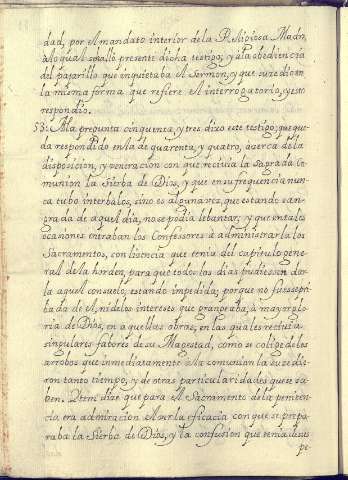 dad, por el mandato interior de la Religiosa Madre,
a lo qual se halló presente dicha testigo; y a la obediencia
del pajarillo que inquietaba el Sermon, y que suzedio en
la misma forma que refiere el interrogatorio, y esto
respondio.
53. A la pregunta cinquenta, y tres dixo este testigo; que que-
da respondido en la de quarenta, y quatro, acerca de la
disposicion, y veneracion con que recivia la sagrada Co-
munion la Sierba de Dios, y que en su frequencia nun-
ca tubo interbalos, sino es alguna vez, que estando san-
grada de aquel dia, no se podia lebantar, y que en tales
ocasiones entraban los Confessores à administrarla los
Sacramentos, con licencia que tenia del capitulo gene-
ral de la horden, para que todos los dias pudiesen dar
la aquel consuelo, estando impedida; porque no fuesse pri-
bada de el, ni de los intereses que grangeaba, à mayor glo-
ria de Dios, en aquellas obras, en las quales recivia
singulares fabores de su Magestad, como se colige de los
arrobos que inmediatamente à la comunion la suzedie-
ron tanto tiempo, y de otras particularidades que se sa-
ben. Item dixo que para el Sacramento de la peniten-
cia era admiracion el ver la eficacia con que se prepa-
raba la Sierba de Dios, y la confusion que tenia de sus
pe-